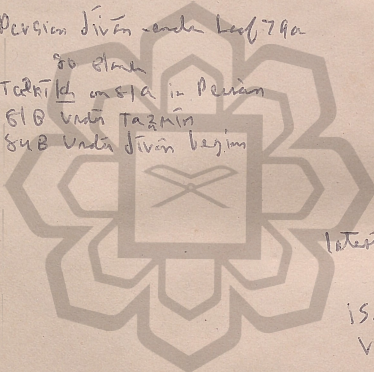 Persian dīvān ends leaf 79a
80 blank
Tārīkh on 81a in Persian
81B Urdū Tazmīn
84B Urdū dīvān begins